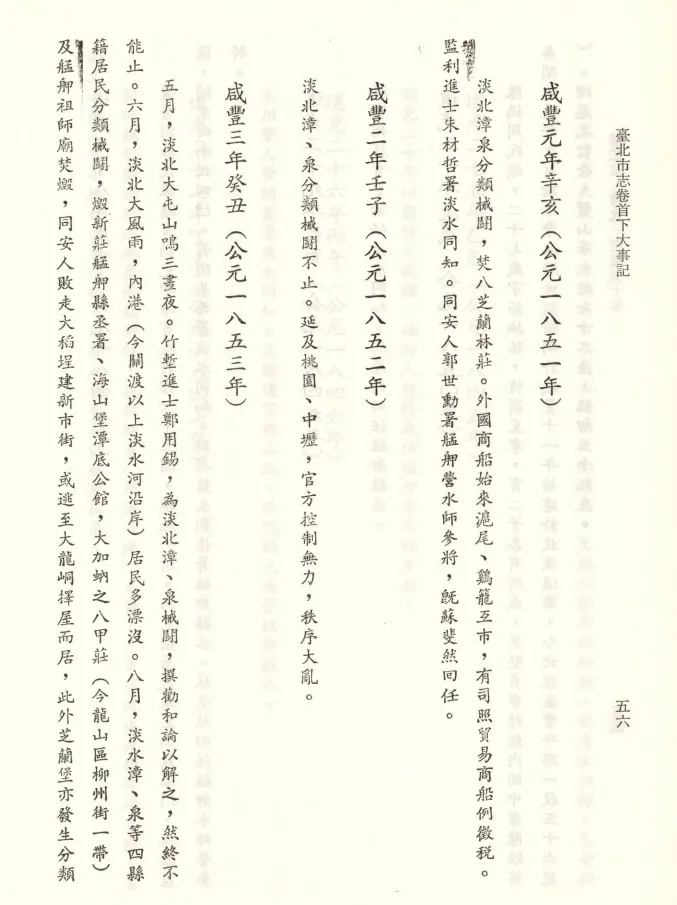 臺北市志卷首下大事記
五六
咸豐元年辛亥（公元一八五一年）
淡北漳泉分類械鬪，焚八芝蘭林莊。外國商船始來滬尾、鷄籠互市，有司照貿易商船例徵稅。
監利進士朱材哲署淡水同知。同安人郭世勳署艋舺營水師參將，旣蘇斐然回任。
咸豐二年壬子（公元一八五二年）
淡北漳、泉分類械鬪不止。延及桃園、中壢，官方控制無力，秩序大亂。
咸豐三年癸丑（公元一八五三年）
五月，淡北大屯山鳴三晝夜。竹塹進士鄭用錫，為淡北漳、泉械鬪，撰勸和論以解之，然終不
能止。六月，淡北大風雨，內港（今關渡以上淡水河沿岸）居民多漂沒。八月，淡水漳、泉等四縣
籍居民分類械鬪，燬新莊艋舺縣丞署、海山堡潭底公館，大加蚋之八甲莊（今龍山區柳州街一帶）
及艋舺祖師廟焚燬，同安人敗走大稻埕建新市街，或逃至大龍峒擇屋而居，此外芝蘭堡亦發生分類